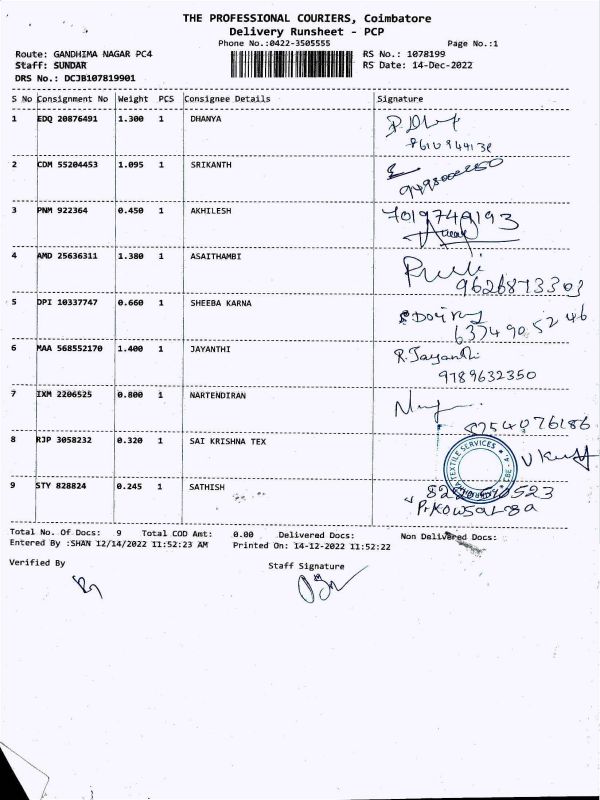 THE PROFESSIONAL COURIERS, Coimbatore
Delivery Runsheet - PCP
Phone No.:0422-3505555
Page No.:1
Route: GANDHIMA NAGAR PC4
RS No.: 1078199
Staff: SUNDAR
RS Date: 14-Dec-2022
DRS No.: DCJB107819901
S No Consignment No Weight PCS Consignee Details Signature
1 EDQ 20876491 1.300 1 DHANYA
2 CDM 55204453 1.095 1 SRIKANTH
3 PNM 922364 0.450 1 AKHILESH
7019749193
4 AMD 25636311 1.380 1 ASAITHAMBI
9626873303
5 DPI 10337747 0.660 1 SHEEBA KARNA
6374905246
6 MAA 568552170 1.400 1 JAYANTHI
R. Jayanthi
9789632350
7 IXM 2206525 0.800 1 NARTENDIRAN
8254076186
8 RJP 3058232 0.320 1 SAI KRISHNA TEX
TEXTILE SERVICES
9 STY 828824 0.245 1 SATHISH
Total No. Of Docs: 9 Total COD Amt: 0.00 Delivered Docs: Non Delivered Docs:
Entered By :SHAN 12/14/2022 11:52:23 AM Printed On: 14-12-2022 11:52:22
Verified By
Staff Signature